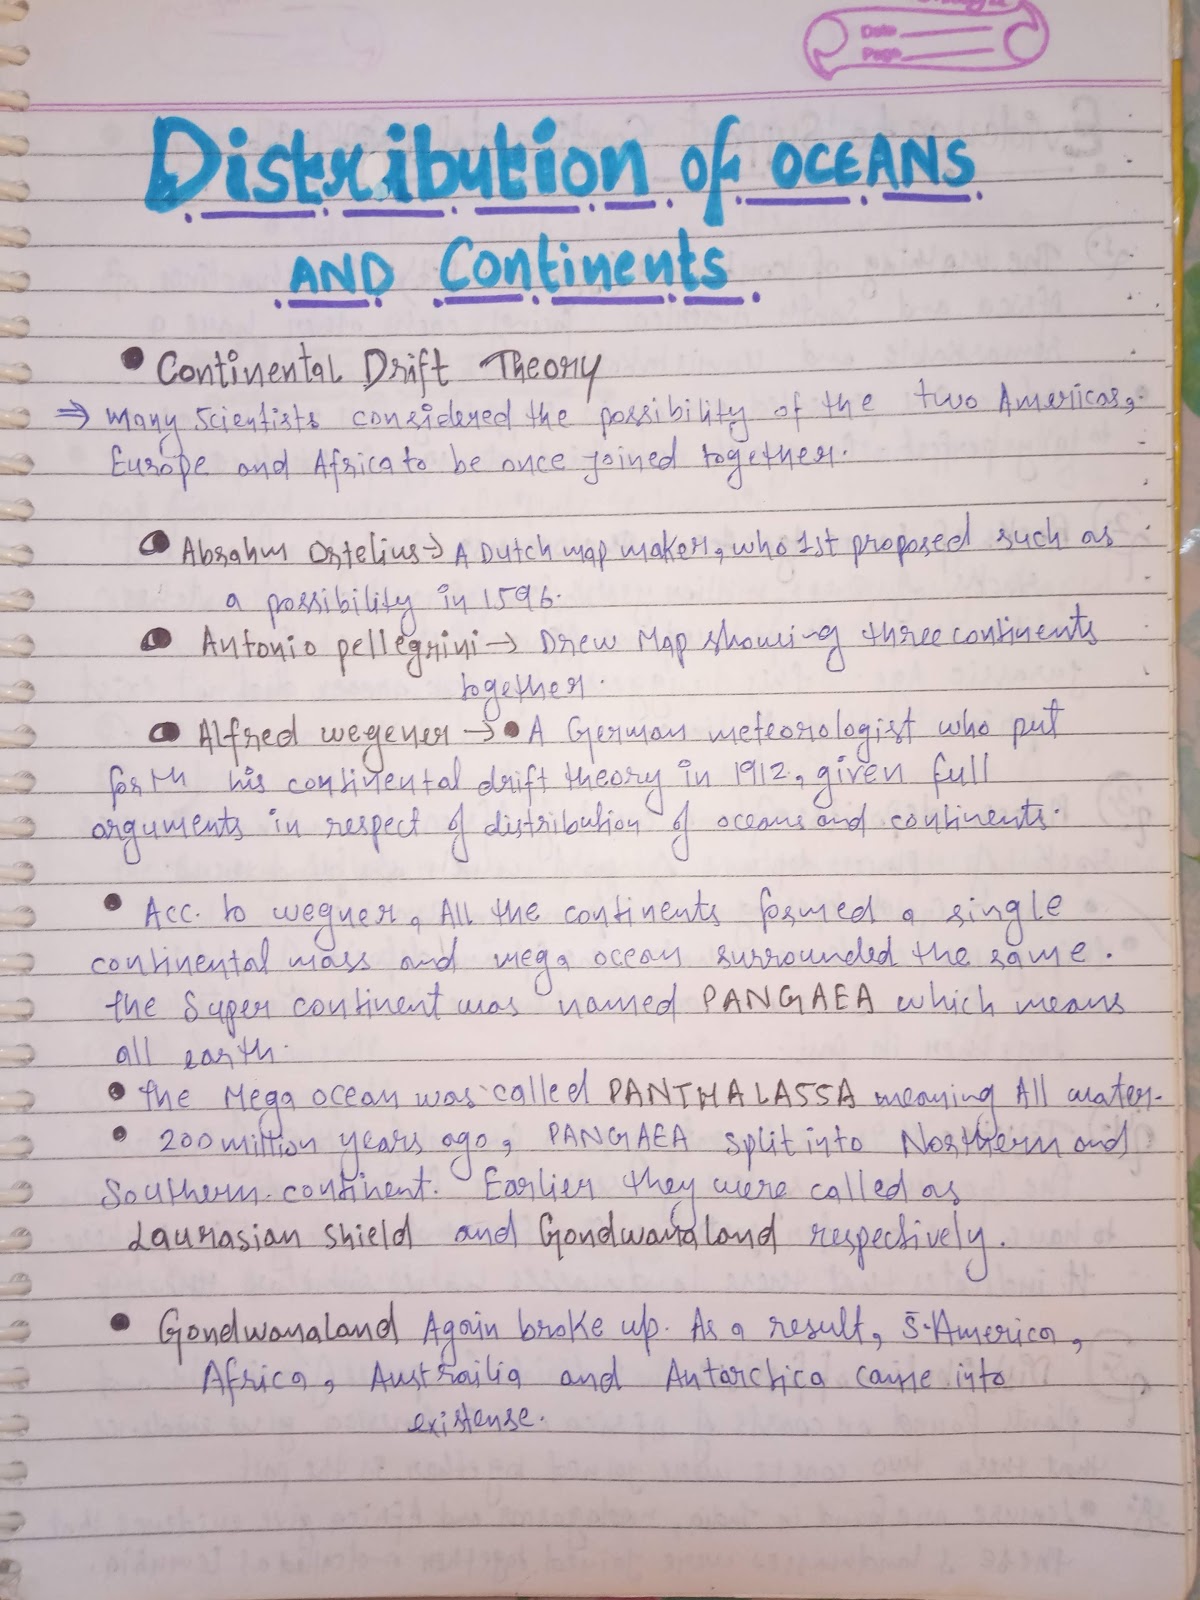 Date
Page
Distribution of OCEANS
AND Continents
• Continental Drift Theory
⇒ Many Scientists considered the possibility of the two Americas,
Europe and Africa to be once joined together.
• Abrahm Ortelius → A Dutch map maker, who 1st proposed such as
a possibility in 1596.
• Antonio pellegrini → Drew Map showing three continents
together.
• Alfred wegener → • A German meteorologist who put
forth his continental drift theory in 1912, given full
arguments in respect of distribution of oceans and continents.
• Acc. to wegner, All the continents formed a single
continental mass and mega ocean surrounded the same.
the Super continent was named PANGAEA which means
all earth.
• the Mega ocean was called PANTHALASSA meaning All water.
• 200 million years ago, PANGAEA split into Northern and
Southern continent. Earlier they were called as
Laurasian shield and Gondwanaland respectively.
• Gondwanaland Again broke up. As a result, S-America,
Africa, Austrailia and Antarctica came into
existense.